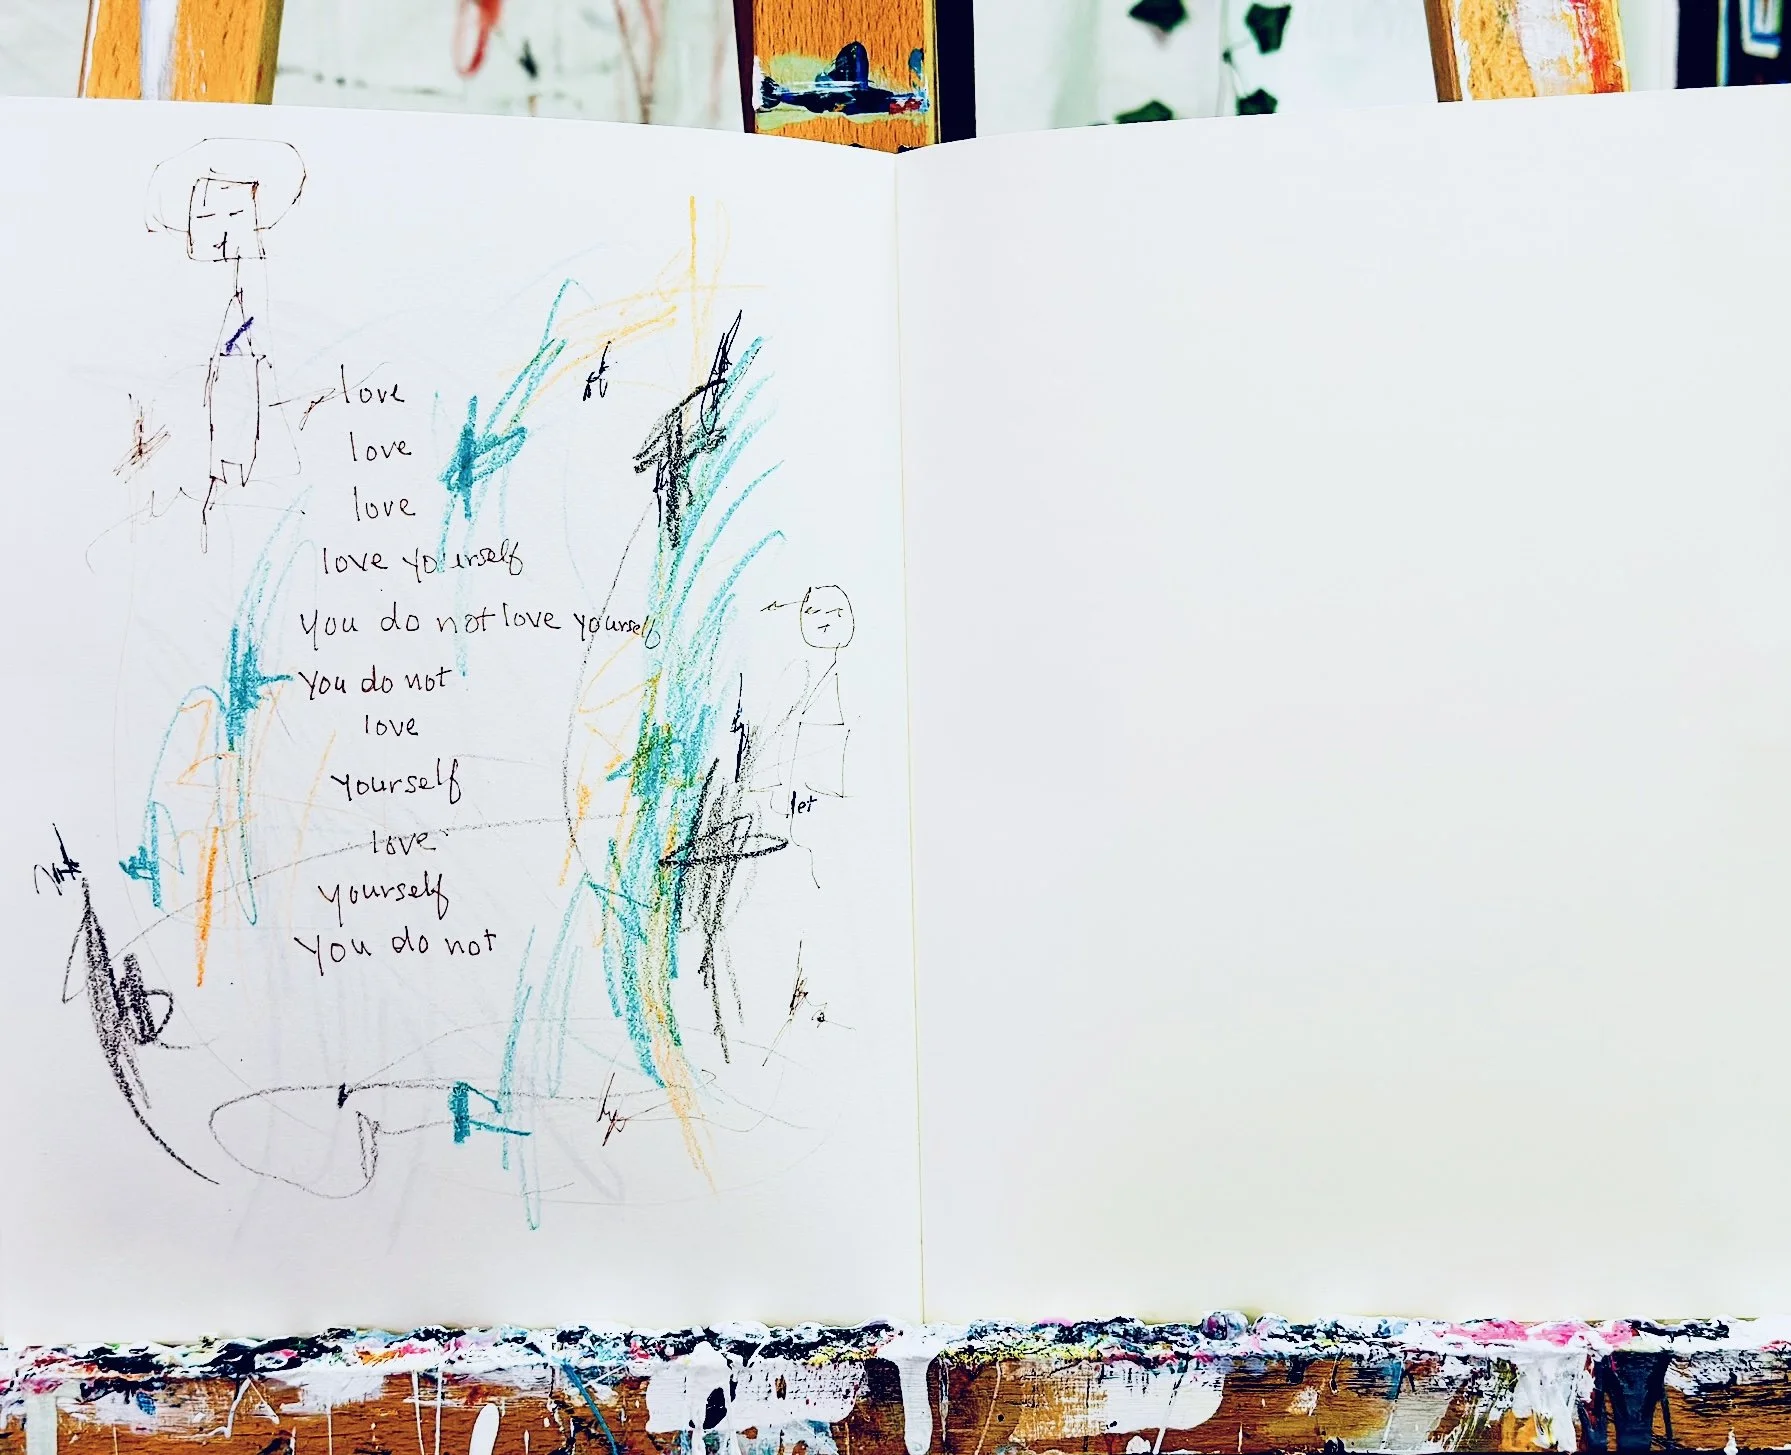 love
love
love
love yourself
You do not love yourself
You do not
love
yourself
love
yourself
You do not